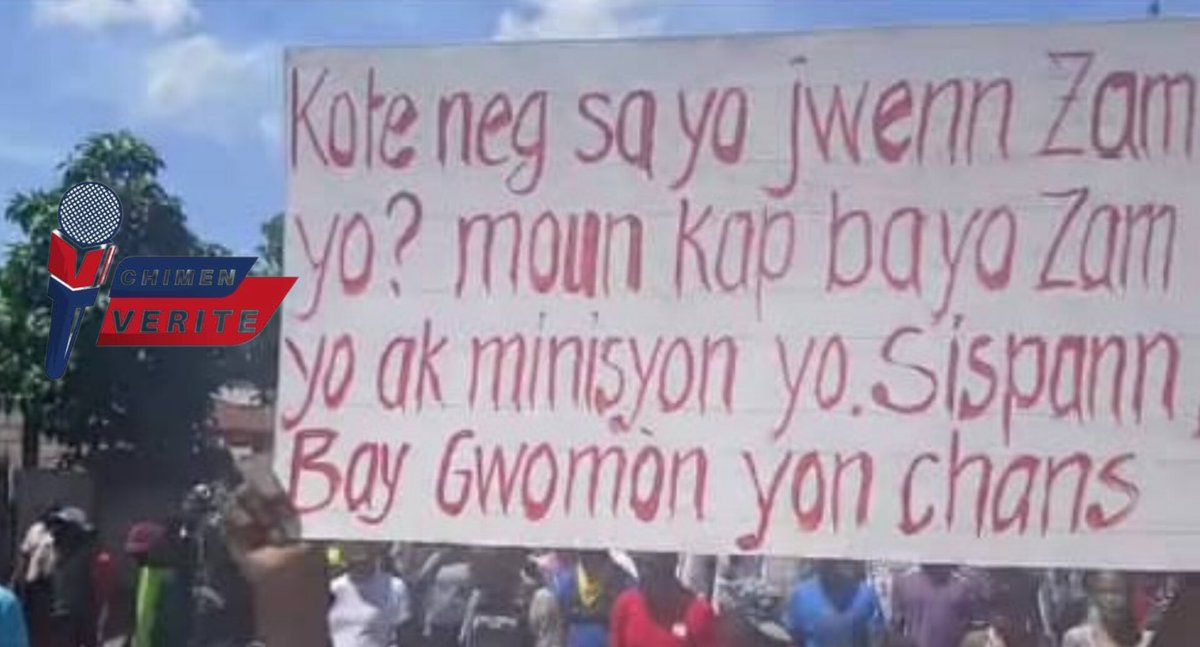 Kote neg sa yo jwenn Zam
yo? moun kap bayo Zam
yo ak minisyon yo. Sispann,
Bay Gwomòn yon chans
CHIMEN
VERITE